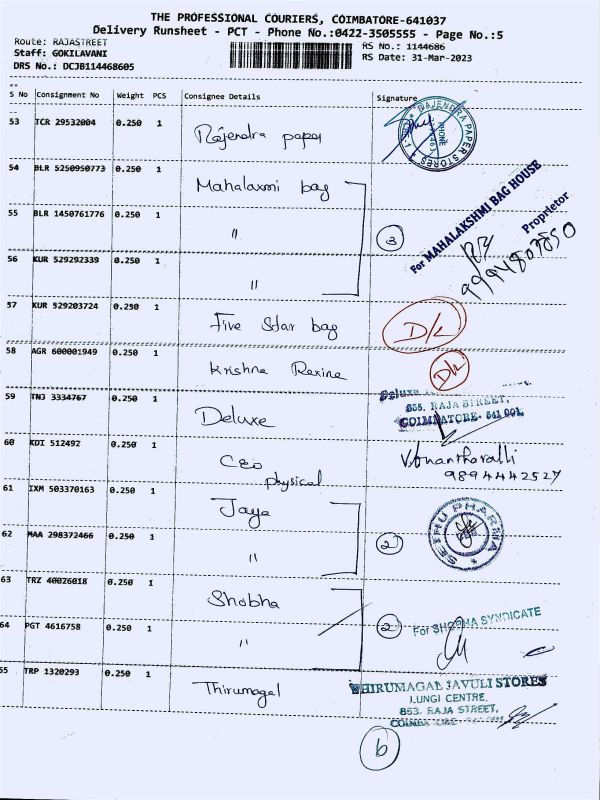 THE PROFESSIONAL COURIERS, COIMBATORE-641037
Delivery Runsheet - PCT - Phone No.:0422-3505555 - Page No.:5
Route: RAJASTREET
Staff: GOKILAVANI
DRS No.: DCJB114468605
RS No.: 1144686
RS Date: 31-Mar-2023
S No Consignment No Weight PCS Consignee Details Signature
53 TCR 29532004 0.250 1 Rajendra paper
RAJENDRA PAPER STORES
PHONE
54 BLR 5250950773 0.250 1 Mahalaxmi bag
55 BLR 1450761776 0.250 1 " 3
For MAHALAKSHMI BAG HOUSE
Proprietor
9994807850
56 KUR 529292339 0.250 1 "
57 KUR 529203724 0.250 1 Five Star bag D/L
58 AGR 600001949 0.250 1 Krishna Rexine D/L
59 TNJ 3334767 0.250 1 Deluxe
Deluxe
855, RAJA STREET,
COIMBATORE- 641 001.
60 KDI 512492 0.250 1 CEO physical
9894442527
61 IXM 503370163 0.250 1 Jaya
62 MAA 298372466 0.250 1 " 2
SETHU PHARMA
63 TRZ 40026018 0.250 1 Shobha
64 PGT 4616758 0.250 1 " 2
For SHOBHA SYNDICATE
55 TRP 1320293 0.250 1 Thirumagal
THIRUMAGAL JAVULI STORES
LUNGI CENTRE,
853, RAJA STREET,
b